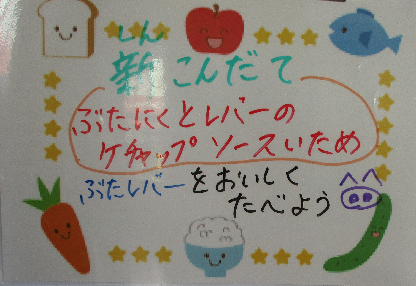 しん
新こんだて
ぶたにくとレバーの
ケチャップソースいため
ぶたレバーをおいしく
たべよう